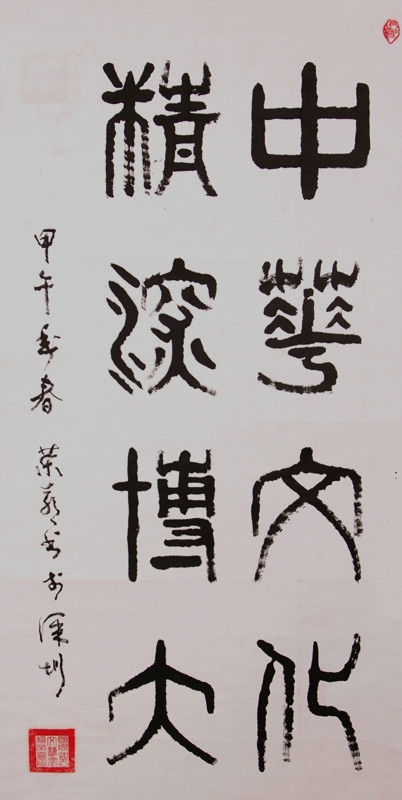 中華文化
精深博大
甲午春 深圳